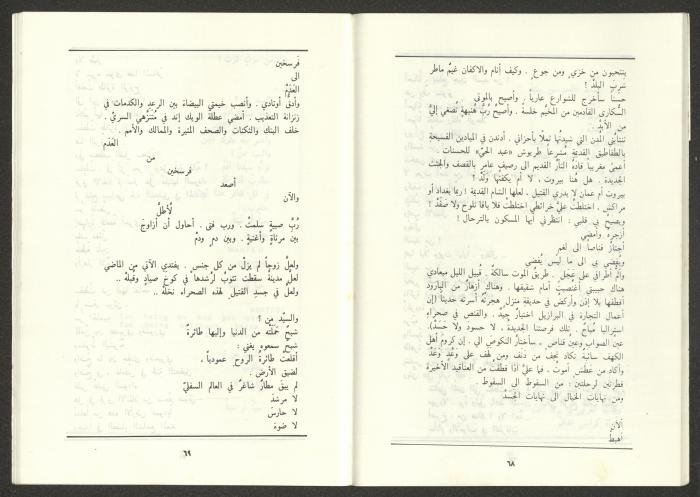 ينتحبون من خزي ومن جوع . وكيف أنام والاكفان غيم ماطر
سرب البلد !
حسناً سأخرج للشوارع عارياً . وأصيح بالموتى
السكارى القادمين من المخيم خلسة . وأصيح رب هنيهة تصغي إلي
من الأبد
تنتابني المدن التي شيدتها ثملاً بأحزاني . أدندن في الميادين الفسيحة
بالطقاطيق القديمة مشرعاً طربوش «عبد الحي» للحسنات .
أعمى مغربياً قاده الثأر القديم الى رصيف عامر بالقصف والجثث
الجديدة . هل هنا بيروت . لا أم يكفنها ولد !
بيروت أم عمان لا يدري القتيل . لعلها الشام القديمة ! ربما بغداد أو
مراكش . اختلطت علي خرائطي اختلطت فلا يافا تلوح ولا صفد !
ويصيح بي قلبي : انتظرني أيها المسكون بالترحال !
أزجره وأمضي
أجتاز قناصاً الى لغم
ويفضي بي الى ما ليس يفضي
وألم أطرافي على عجل . طريق الموت سالكة . قبيل الليل ميعادي
هناك حبيبتي اغتصبت أمام شقيقها . وهناك أزهار من البارود
أقطفها بلا إذن وأركض في حديقة منزل هجرته أسرته حديثاً (إن
أعمال التجارة في البرازيل اختبار جيد . والقنص في صحراء
استراليا مباح . تلك فرصتنا الجديدة . لا حسود ولا حسد).
عين الصواب وعين قناص . سأختار النكوص الي . إن كروم أهل
الكهف سائبة تكاد تجف من دنف ومن لهف على وعد وعد
وأكاد من عطش أموت . فيا علي اذا قطفت من العناقيد الأخيرة
قطرتين لرحلتين : من السقوط الى السقوط .
ومن نهايات الخيال الى نهايات الجسد
الآن
أهبط
٦٨
فرسخين
الى
العدم
وأدق أوتادي . وأنصب خيمتي البيضاء بين الرعد والكدمات في
زنزانة التعذيب . أمضي عطلة الويك إند في متنزهي السري .
خلف البنك والثكنات والصحف المثيرة والممالك والأمم .
العدم
من
فرسخين
أصعد
والآن
لأطل
رب صبية سلمت . ورب فتى . أحاول أن أزاوج
بين مرثاة وأغنية . وبين دم ودم
ولعل زوجاً لم يزل من كل جنس . يفتدي الآتي من الماضي
لعل مدينة سقطت تثوب لرشدها في كوخ صياد وقبله ..
ولعل في جسد القتيل لهذه الصحراء نخله ..
والسيد من !
شبح حملته من الدنيا وإليها طائرة
شبح سمعوه يغني :
أقلعت طائرة الروح عمودياً .
لضيق الأرض .
لم يبق مطار شاغر في العالم السفلي
لا مرشد
لا حارس
لا ضوء
٦٩